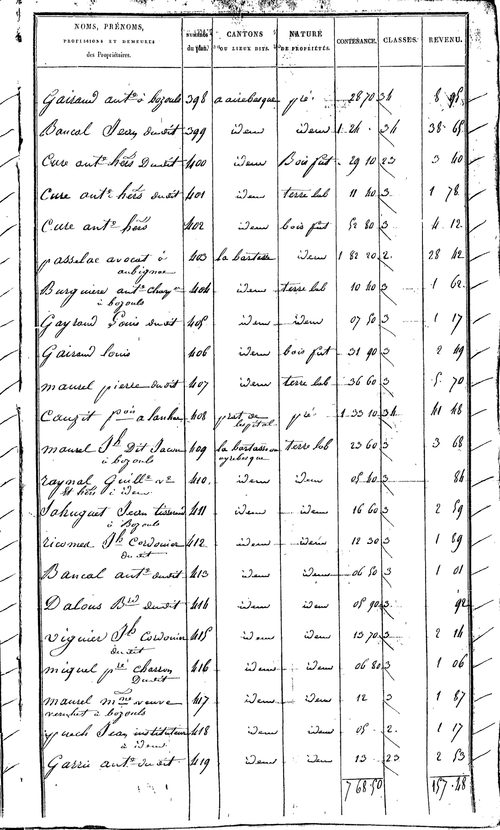 NOMS, PRÉNOMS, PROFESSIONS ET DEMEURES des Propriétaires. NUMÉROS du plan. CANTONS OU LIEUX DITS. NATURE DE PROPRIÉTÉS. CONTENANCE. CLASSES. REVENU.
Gairaud ant.e à bozouls 398 a airebesque pré 28 70 34 8 95
Bancal Jean dudit 399 idem idem 1 24 34 38 65
Cure ant.e hérs dudit 400 idem Bois fut 29 10 23 3 40
Cure ant.e hérs dudit 401 idem terre lab 11 40 3 1 78
Cure ant.e hérs 402 idem bois fut 52 80 3 4 12
passelac avocat à 403 la bartasse idem 1 82 20 2 28 42
aubignac
Burguiere ant.e 404 idem terre lab 10 40 3 1 62
à bozouls
Gayraud Louis dudit 405 idem idem 07 50 3 1 17
Gairaud louis 406 idem bois fut 31 90 3 2 49
maurel pierre dudit 407 idem terre lab 36 60 3 5 70
Cauzit 408 prat de pré 1 33 10 34 41 48
lespital
maurel Jh Dit 409 la bartasse ou terre lab 23 60 3 3 68
à bozouls ayrebesque
raynal Guill.e ve 410 idem idem 05 40 3 84
et hérs à idem
Sahuguet Jean tisserand 411 idem idem 16 60 3 2 59
à Bozouls
ricomes Jh Cordonier 412 idem idem 12 30 3 1 89
dudit
Bancal ant.e dudit 413 idem idem 06 50 3 1 01
Dalous Bd dudit 414 idem idem 05 90 3 92
Viguier Jh Cordonier 415 idem idem 13 70 3 2 14
dudit
miquel pre charron 416 idem idem 06 80 3 1 06
Dudit
maurel mne veuve 417 idem idem 12 3 1 87
vernhet à bozouls
puech Jean instituteur 418 idem idem 05 2 1 17
à idem
Garric ant.e dudit 419 idem idem 13 23 2 53
7 68 50 157 48